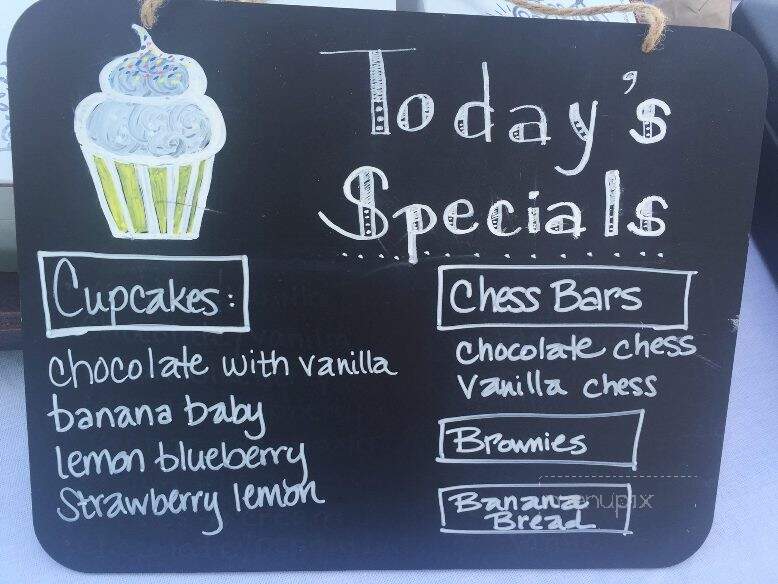 Today's
Specials
Cupcakes:
chocolate with vanilla
banana baby
lemon blueberry
Strawberry lemon
Chess Bars
chocolate chess
vanilla chess
Brownies
Banana
Bread
menupix